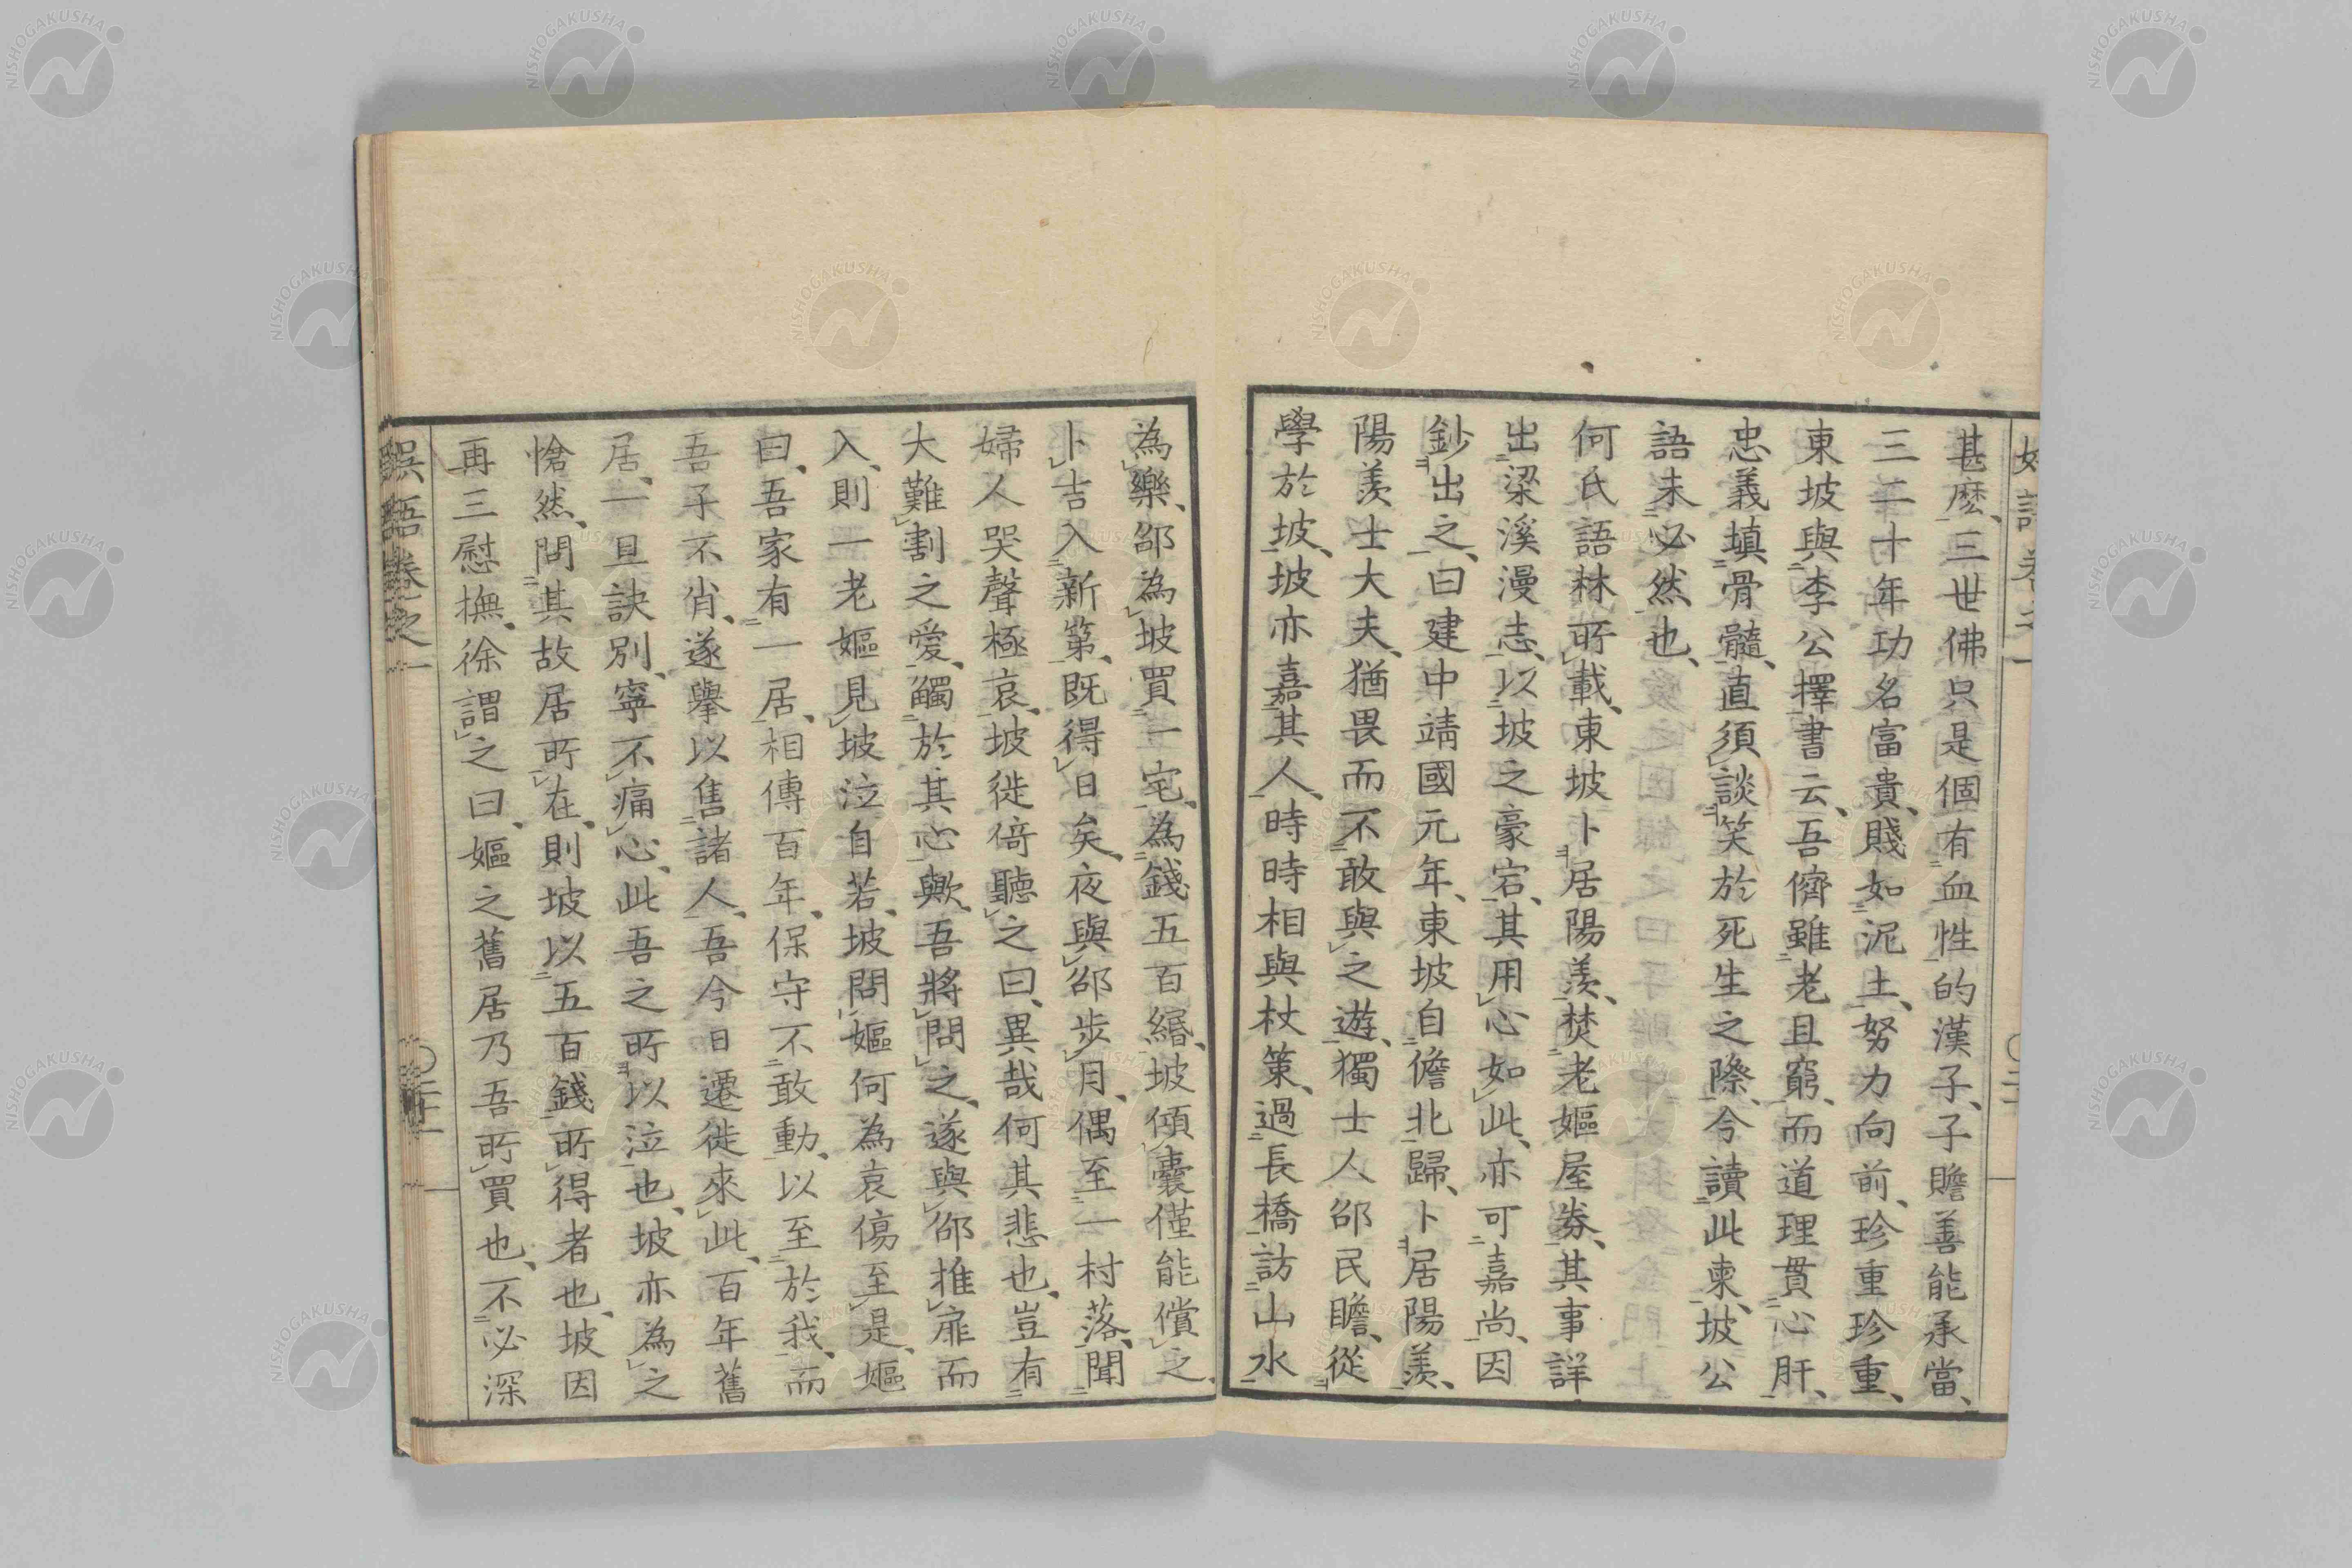 甚麽、三世佛只是個有血性的漢子、子瞻善能承當、
三二十年功名富貴、賤如泥土、努力向前、珍重珍重、
東坡與李公擇書云、吾儕雖老且窮、而道理貫心肝、
忠義填骨髓、直須談笑於死生之際、今讀此柬、坡公
語未必然也、
何氏語林所載、東坡卜居陽羨、焚老嫗屋券、其事詳
出梁溪漫志、以坡之豪宕、其用心如此、亦可嘉尚、因
鈔出之、曰建中靖國元年、東坡自儋北歸、卜居陽羨、
陽羨士大夫、猶畏而不敢與之遊、獨士人邵民瞻、從
學於坡、坡亦嘉其人、時時相與杖策、過長橋訪山水
為樂、邵為坡買一宅、為錢五百緡、坡傾囊僅能償之、
卜吉入新第、既得日矣、夜與邵步月、偶至一村落、聞
婦人哭聲極哀、坡徙倚聽之曰、異哉何其悲也、豈有
大難割之愛、觸於其心歟、吾將問之、遂與邵推扉而
入、則一老嫗見坡泣自若、坡問嫗何為哀傷至是、嫗
曰、吾家有一居、相傳百年、保守不敢動、以至於我、而
吾子不肖、遂擧以售諸人、吾今日遷徙來此、百年舊
居、一旦訣別、寧不痛心、此吾之所以泣也、坡亦為之
愴然、問其故居所在、則坡以五百錢所得者也、坡因
再三慰撫、徐謂之曰、嫗之舊居乃吾所買也、不必深
娯語卷之一
NISHOGAKUSHA